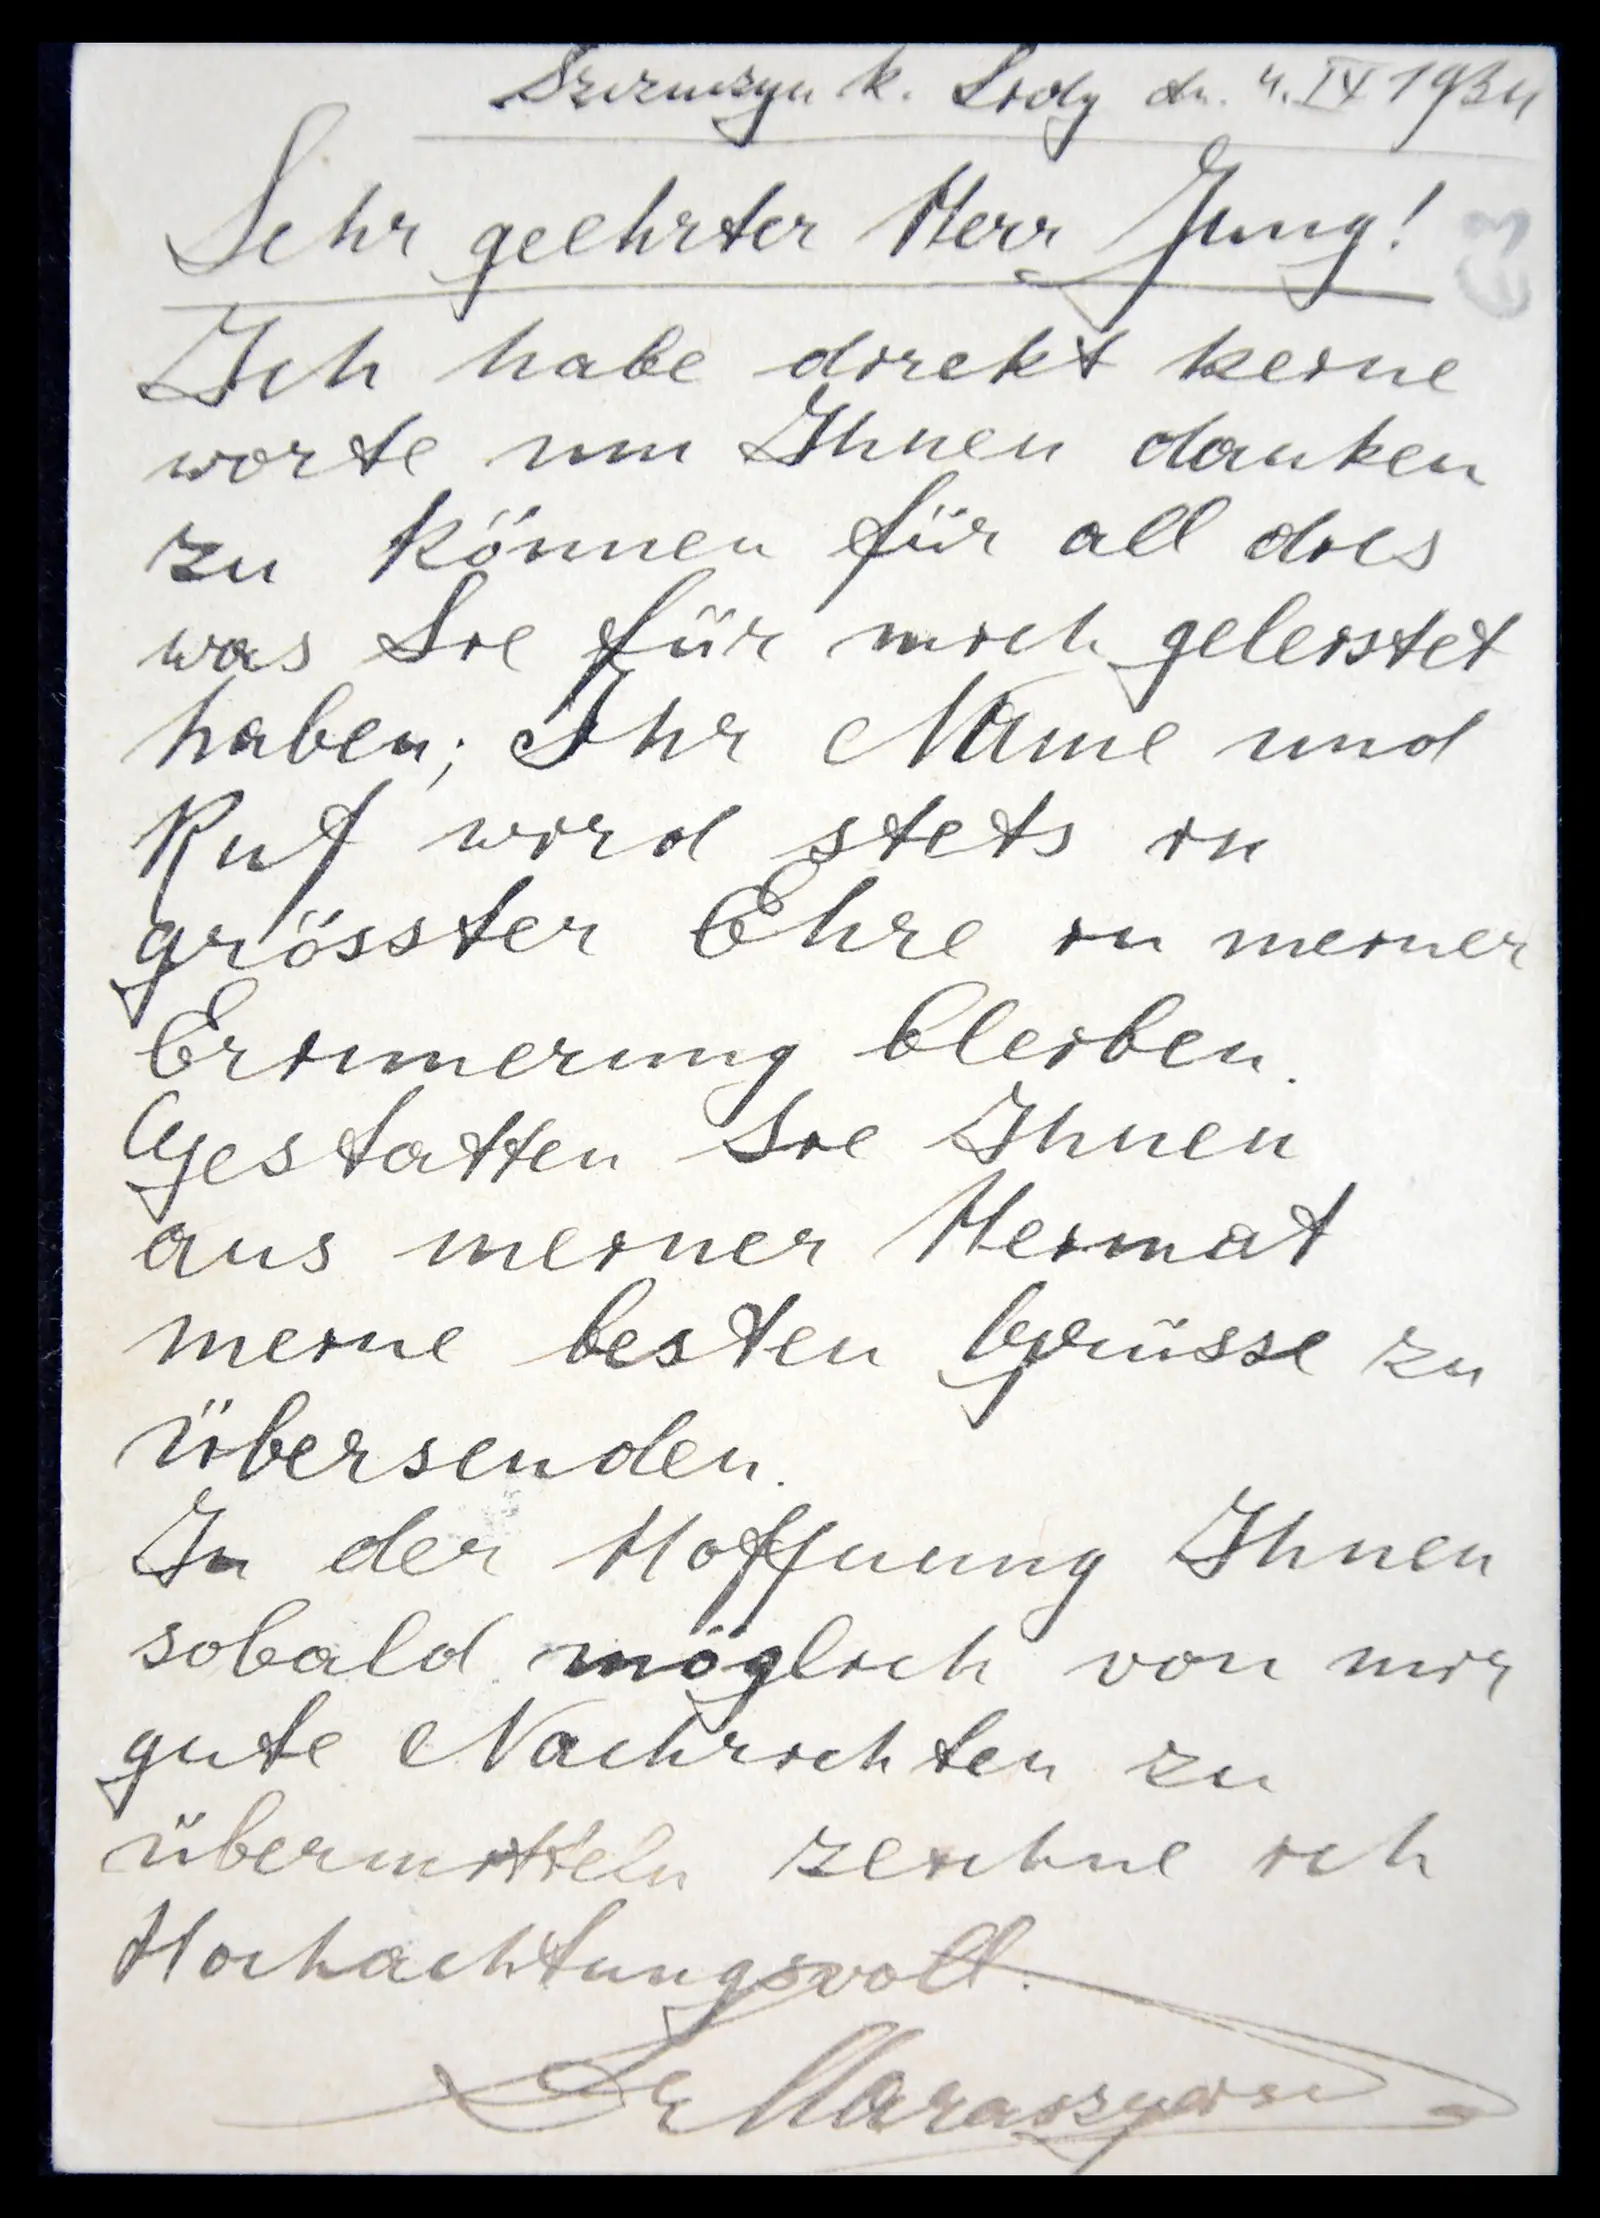 k. Lodz dn. 4. IX 1934
Sehr geehrter Herr Jung!
Ich habe direkt keine
worte um Ihnen danken
zu können für all dies
was Sie für mich geleistet
haben; Ihr Name und
Ruf wird stets in
grösster Ehre in meiner
Erinnerung bleiben.
Gestatten Sie Ihnen
aus meiner Heimat
meine besten Grüsse zu
übersenden.
In der Hoffnung Ihnen
sobald möglich von mir
gute Nachrichten zu
übermitteln zeichne ich
Hochachtungsvoll.